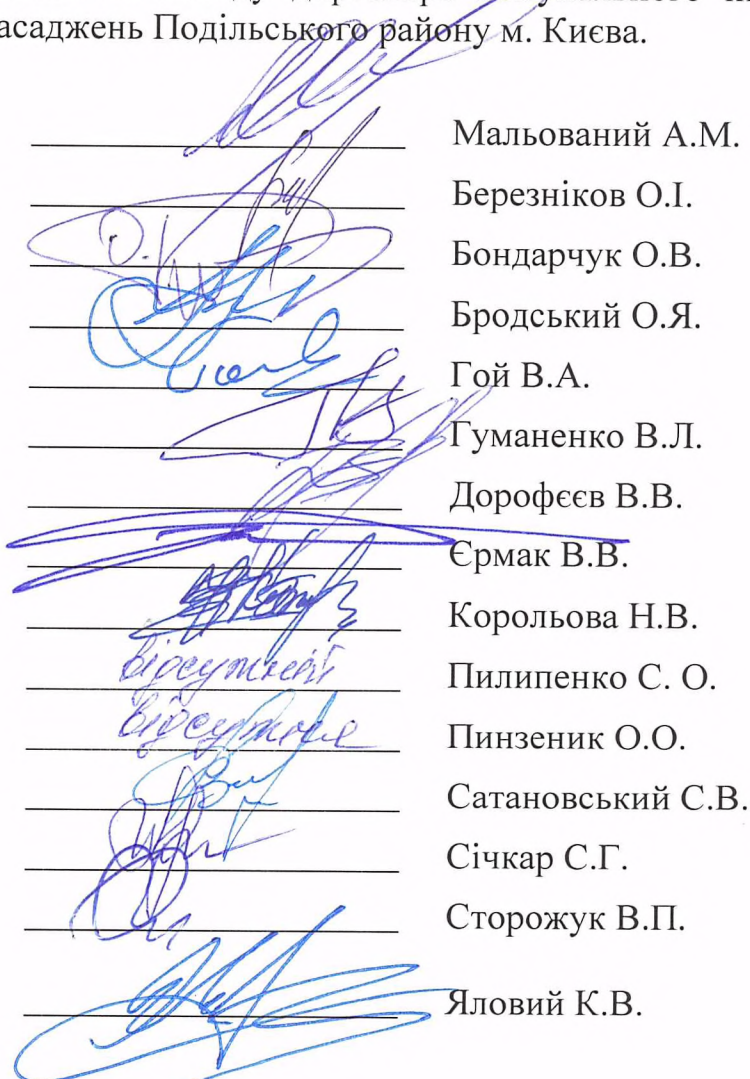 асаджень Подільського району м. Києва.
Мальований А.М.
Березніков О.І.
Бондарчук О.В.
Бродський О.Я.
Гой В.А.
Гуманенко В.Л.
Дорофєєв В.В.
Єрмак В.В.
Корольова Н.В.
відсутній Пилипенко С. О.
відсутня Пинзеник О.О.
Сатановський С.В.
Січкар С.Г.
Сторожук В.П.
Яловий К.В.